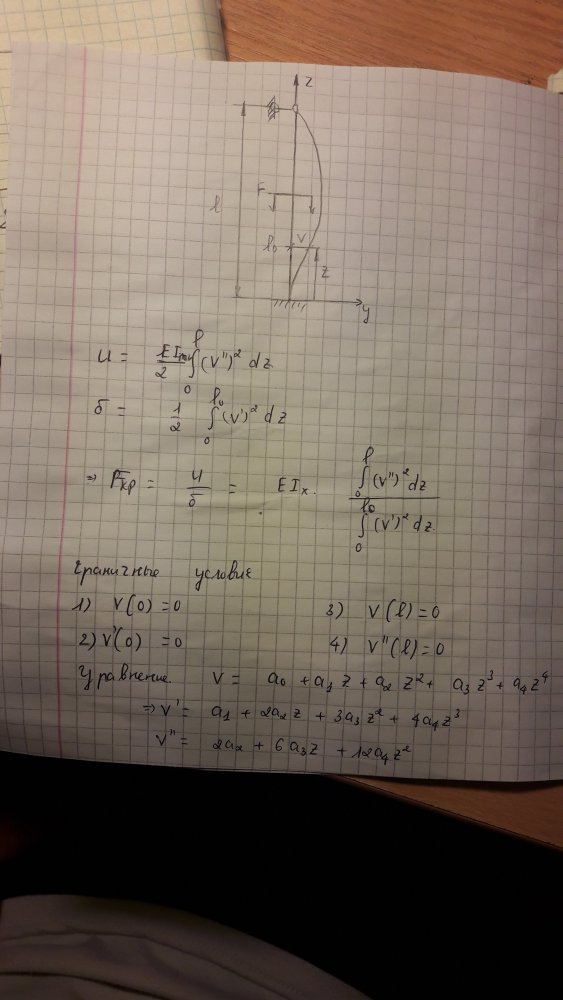 z
F
l
l₀
V
z
y
U = EIx/2 ∫₀ˡ (V'')² dz
δ = 1/2 ∫₀^l₀ (V')² dz
⇒ Fкр = U/δ = EIx · ∫₀ˡ (V'')² dz / ∫₀^l₀ (V')² dz
Граничные условие
1) V(0) = 0 3) V(l) = 0
2) V'(0) = 0 4) V''(l) = 0
Уравнение V = a₀ + a₁ z + a₂ z² + a₃ z³ + a₄ z⁴
⇒ V' = a₁ + 2a₂ z + 3a₃ z² + 4a₄ z³
V'' = 2a₂ + 6a₃ z + 12a₄ z²